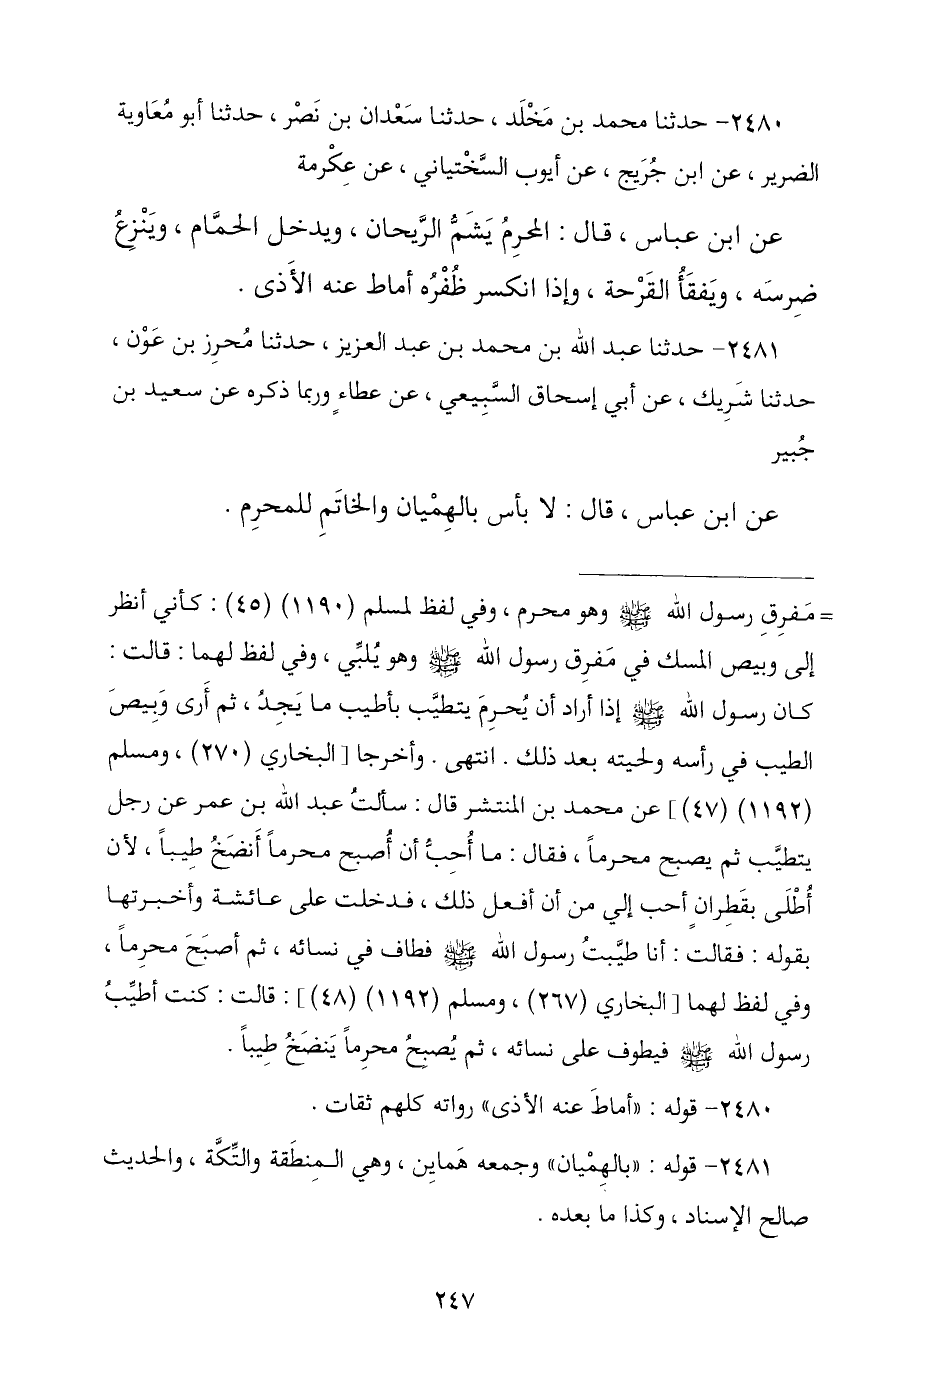 ٢٤٨٠- حدثنا محمد بن مَخْلَد ، حدثنا سَعْدان بن نَصْر ، حدثنا أبو مُعَاوية
الضرير ، عن ابن جُرَيج ، عن أيوب السَّخْتياني ، عن عِكْرمة
عن ابن عباس ، قال : المحرِمُ يَشَمُّ الرَّيحان ، ويدخل الحمَّام ، ويَنْزِعُ
ضِرسَه ، ويَفقَأُ القَرْحة ، وإذا انكسر ظُفْرُه أماط عنه الأَذى .
٢٤٨١- حدثنا عبد الله بن محمد بن عبد العزيز ، حدثنا مُحرِز بن عَوْن ،
حدثنا شَرِيك ، عن أبي إسحاق السَّبِيعي ، عن عطاءٍ وربما ذكره عن سعيد بن
جُبير
عن ابن عباس ، قال : لا بأس بالهِمْيان والخاتَمِ للمحرِم .
= مَفرِقِ رسول الله ﷺ وهو محرم ، وفي لفظ لمسلم (١١٩٠) (٤٥) : كأني أنظر
إلى وبيص المسك في مَفرِق رسول الله ﷺ وهو يُلبِّي ، وفي لفظ لهما : قالت :
كان رسول الله ﷺ إذا أراد أن يُحرِمَ يتطيَّب بأطيب ما يَجِدُ ، ثم أَرى وَبِيصَ
الطيب في رأسه ولحيته بعد ذلك . انتهى . وأخرجا [البخاري (٢٧٠) ، ومسلم
(١١٩٢) (٤٧)] عن محمد بن المنتشر قال : سألتُ عبد الله بن عمر عن رجل
يتطيَّب ثم يصبح محرماً ، فقال : ما أُحبُّ أن أُصبح محرماً أَنضَخُ طِيباً ، لأن
أُطْلَى بقَطِرانٍ أحب إلي من أن أفعل ذلك ، فدخلت على عائشة وأخبرتها
بقوله : فقالت : أنا طيَّبتُ رسول الله ﷺ فطاف في نسائه ، ثم أصبَحَ محرِماً ،
وفي لفظ لهما [البخاري (٢٦٧) ، ومسلم (١١٩٢) (٤٨)] : قالت : كنت أطيِّبُ
رسول الله ﷺ فيطوف على نسائه ، ثم يُصبِحُ محرِماً يَنضَخُ طِيباً .
٢٤٨٠- قوله : «أماطَ عنه الأذى» رواته كلهم ثقات .
٢٤٨١- قوله : «بالهِمْيان» وجمعه هَماين ، وهي المِنطَقة والتِّكَّة ، والحديث
صالح الإسناد ، وكذا ما بعده .
٢٤٧